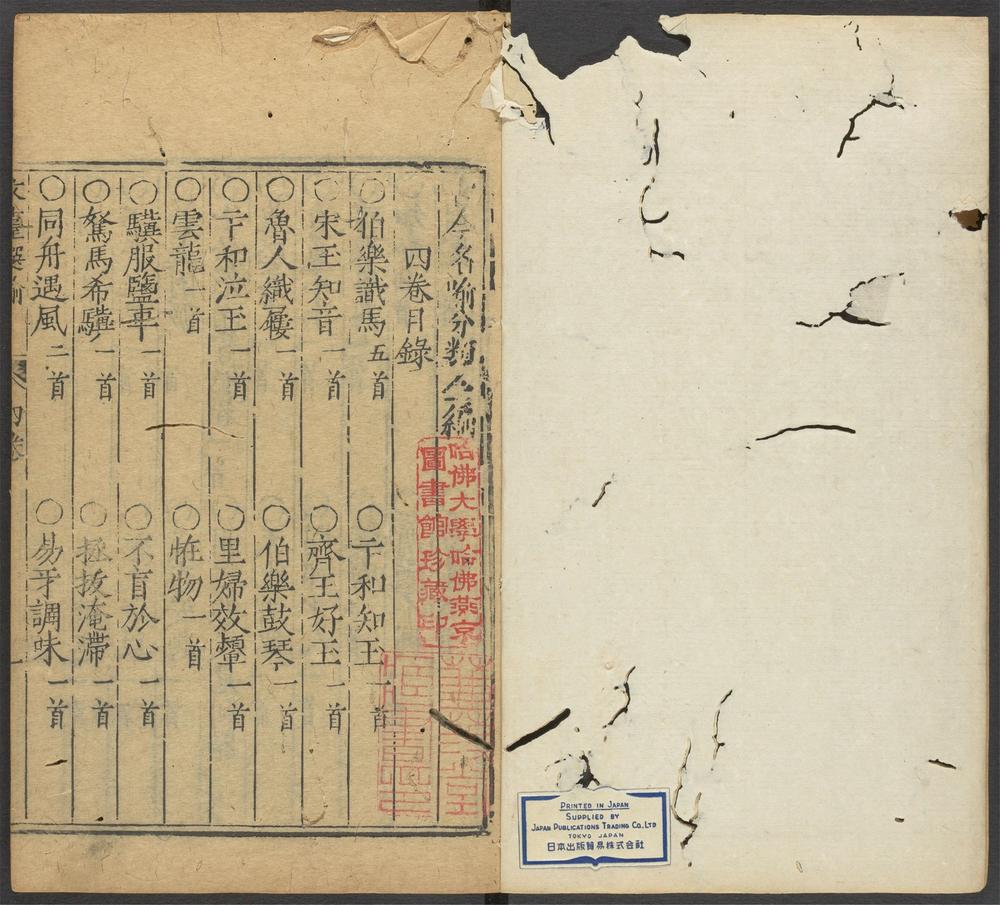 今名喻分類八編
四卷目錄
○伯樂識馬五首 ○卞和知玉一首
○宋玉知音一首 ○齊王好玉一首
○魯人織屨一首 ○伯樂鼓琴一首
○卞和泣玉一首 ○里婦效顰一首
○雲龍一首 ○恠物一首
○驥服鹽車一首 ○不盲於心一首
○駑馬希驥一首 ○拯拔淹滯一首
○同舟遇風二首 ○易牙調味一首
四卷 一
哈佛大學哈佛燕京
圖書館珍藏印
PRINTED IN JAPAN
SUPPLIED BY
JAPAN PUBLICATIONS TRADING CO., LTD
TOKYO JAPAN
日本出版貿易株式会社